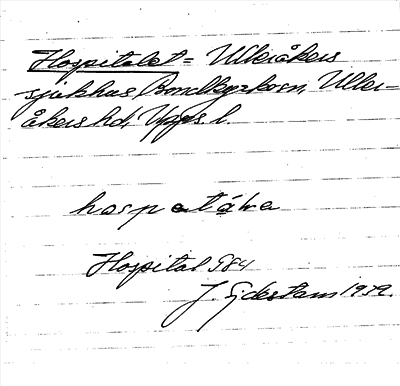 Hospitalet = Ulleråkers
sjukhus, Bondkyrkosn, Uller-
åkers hd, Upps. l.
hospatáḷa
Hospital 984
J. Sjdestam 1939.